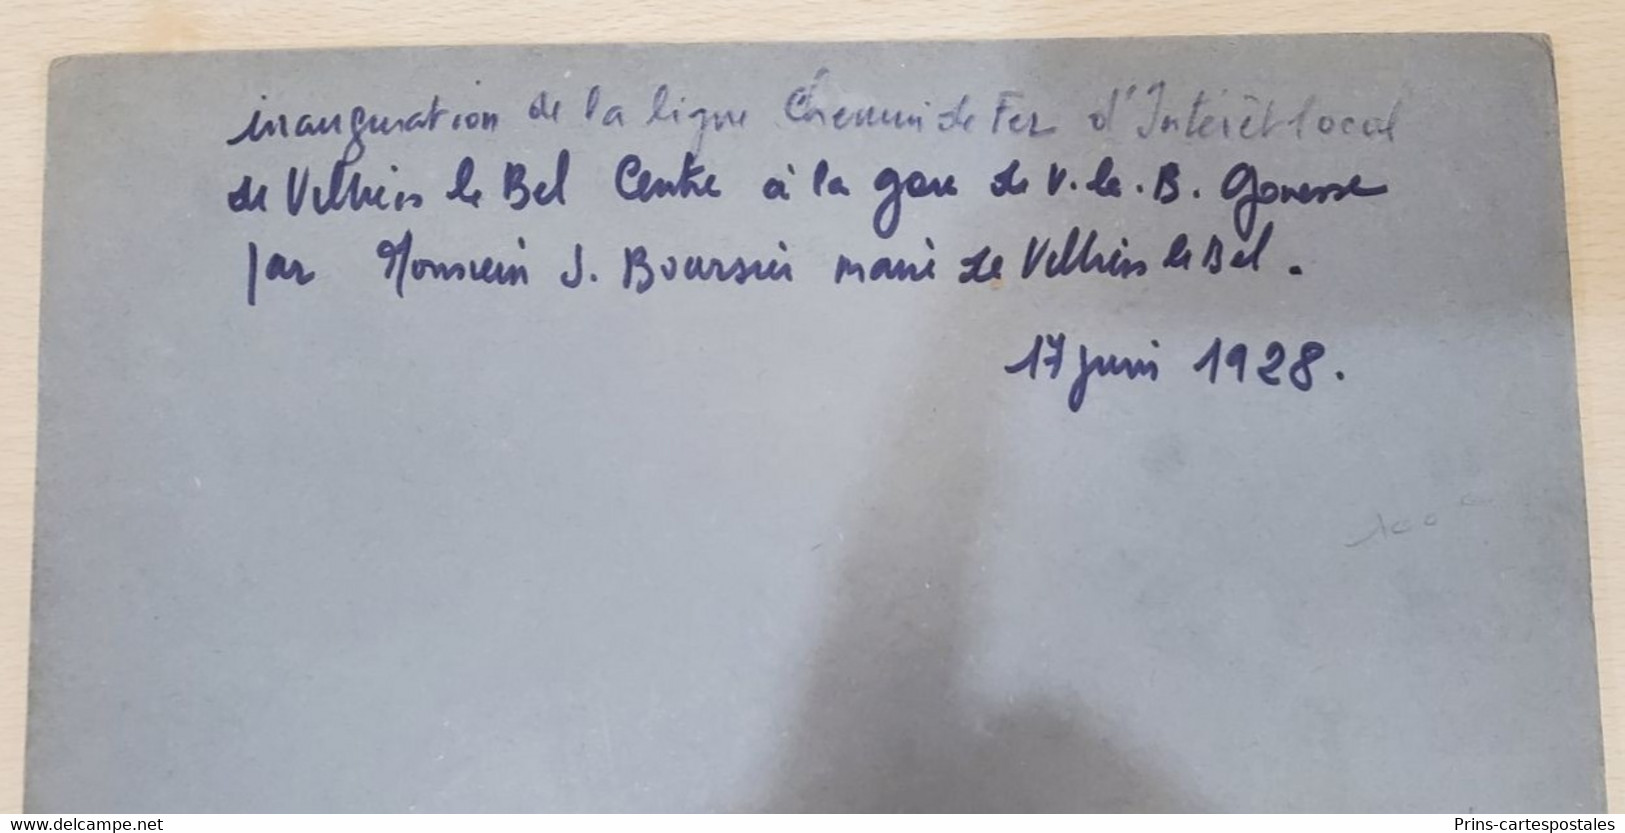 inauguration de la ligne Chemin de Fer d'Intérêt local
de Villiers le Bel Centre à la gare de V. le. B. Gonesse
par Monsieur J. Boursier maire de Villiers le Bel.
17 juin 1928.
www.delcampe.net
Prins-cartespostales